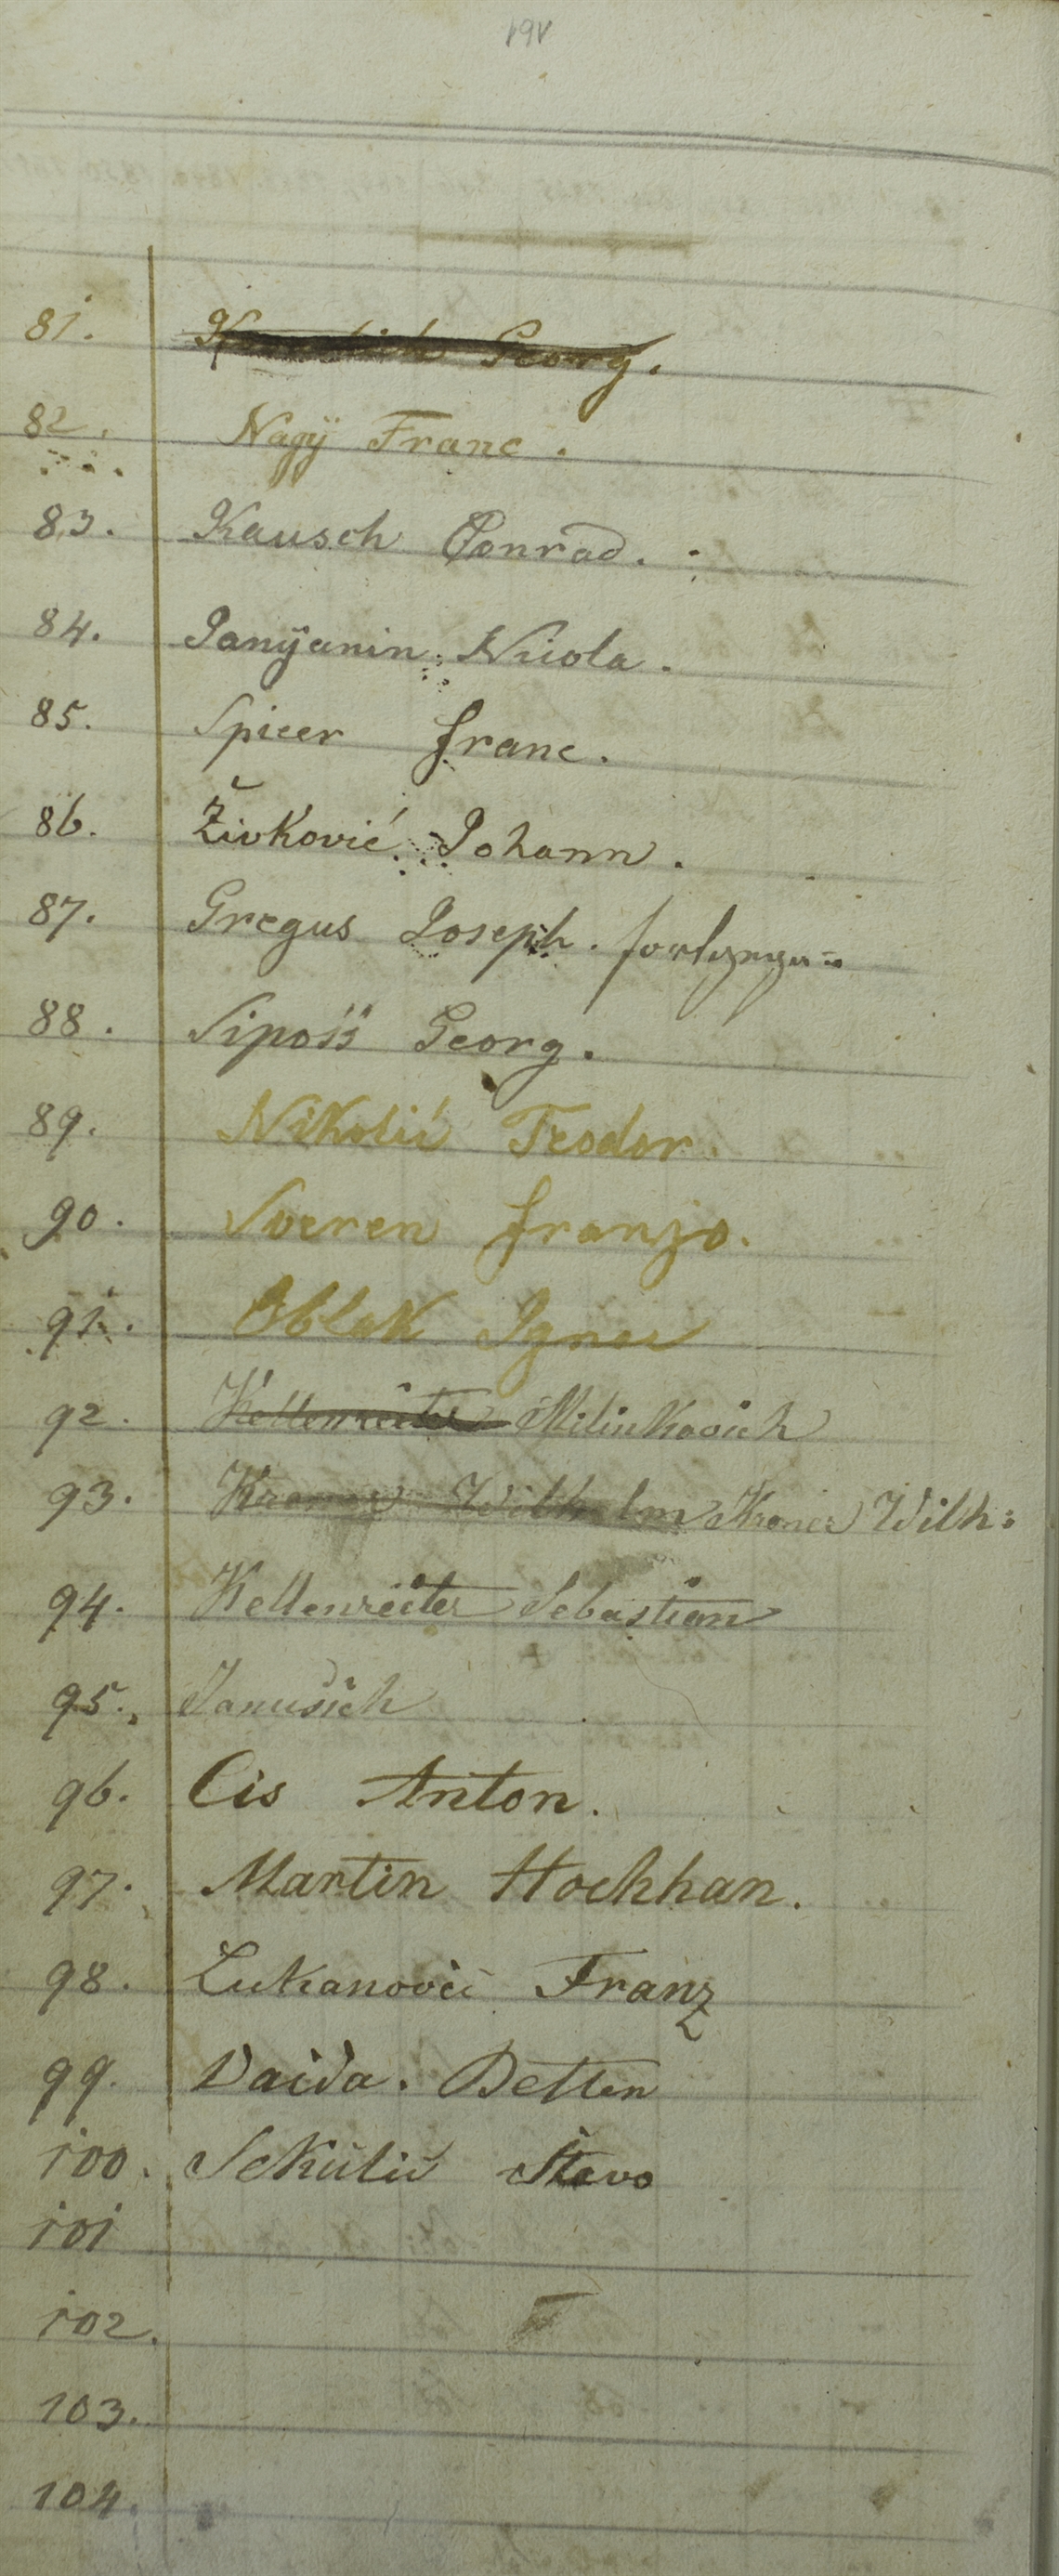 81. Georg.
82. Nagÿ Franc.
83. Kausch Conrad.
84. Janÿanin Nicola.
85. Spicer Franc.
86. Živković Johann.
87. Gregus Joseph.
88. Siposs Georg.
89. Nikolić Teodor.
90. Sveren Franjo.
91. Oblak Ignac
92. Kellenreiter Milinkovich
93. Kroner Wilhelm Kroner Wilh:
94. Kellenreiter Sebastian
95. Janusich
96. Cis Anton.
97. Martin Hochhan.
98. Lukanović Franz
99. Vaida. Detten
100. Sekulić Stevo
101
102.
103.
104.